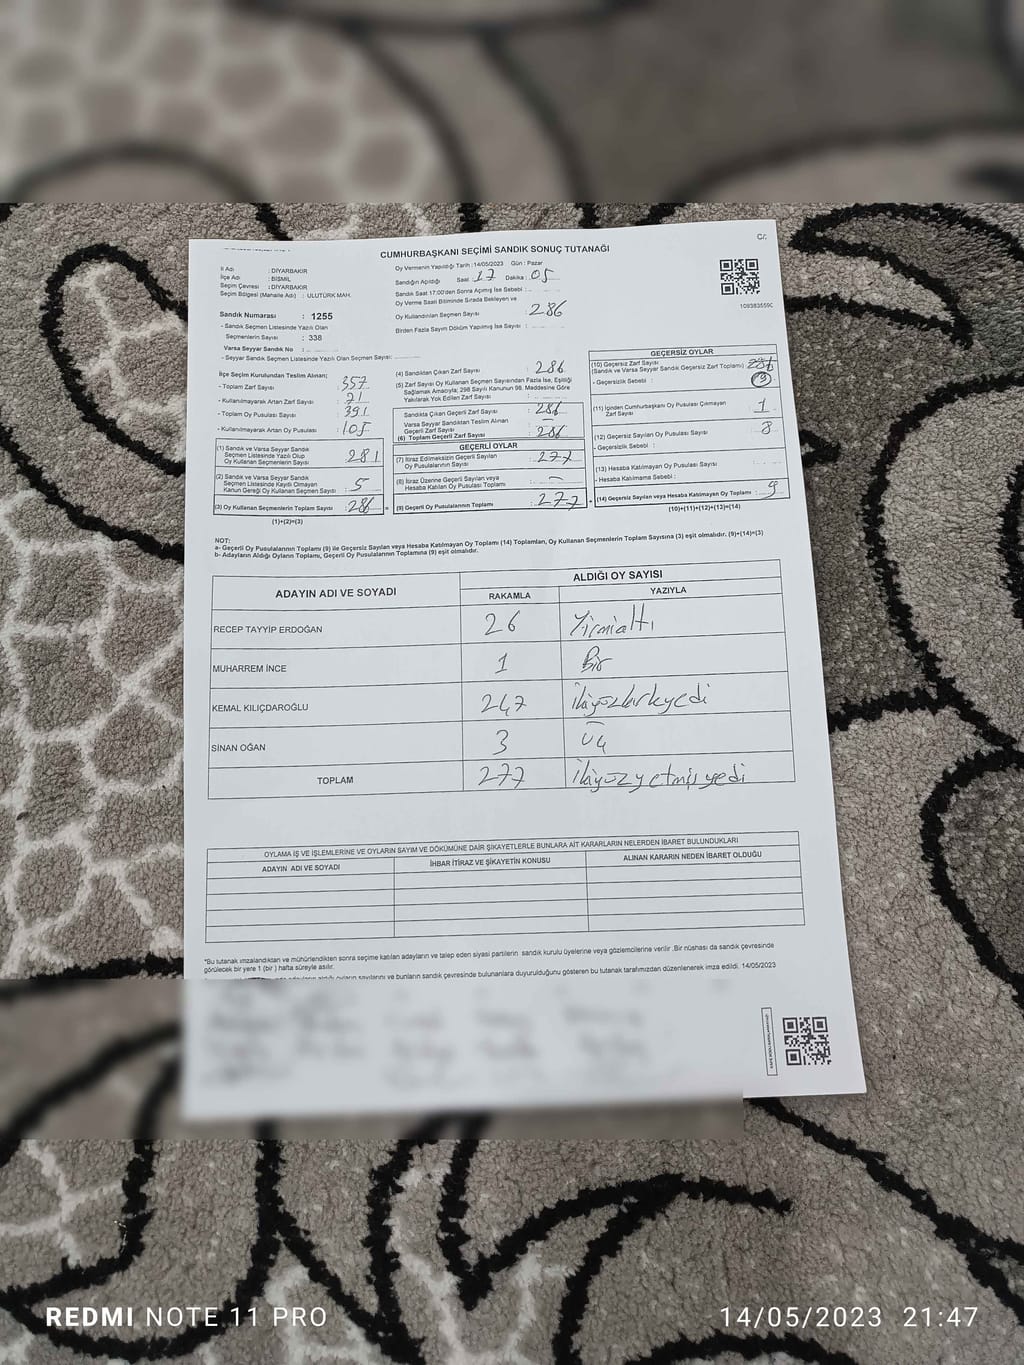 C/.
CUMHURBAŞKANI SEÇİMİ SANDIK SONUÇ TUTANAĞI
İl Adı : DİYARBAKIR
İlçe Adı : BİSMİL
Seçim Çevresi : DİYARBAKIR
Seçim Bölgesi (Mahalle Adı) : ULUTÜRK MAH.
Sandık Numarası : 1255
- Sandık Seçmen Listesinde Yazılı Olan
Seçmenlerin Sayısı : 338
Varsa Seyyar Sandık No :
- Seyyar Sandık Seçmen Listesinde Yazılı Olan Seçmen Sayısı:
Oy Vermenin Yapıldığı Tarih :14/05/2023 Gün : Pazar
Sandığın Açıldığı Saat : 17 Dakika : 05
Sandık Saat 17:00'den Sonra Açılmış İse Sebebi :
Oy Verme Saati Bitiminde Sırada Bekleyen ve
Oy Kullandırılan Seçmen Sayısı : 286
Birden Fazla Sayım Döküm Yapılmış İse Sayısı :
109383559C
İlçe Seçim Kurulundan Teslim Alınan;
- Toplam Zarf Sayısı : 357
- Kullanılmayarak Artan Zarf Sayısı : 71
- Toplam Oy Pusulası Sayısı : 391
- Kullanılmayarak Artan Oy Pusulası : 105
(1) Sandık ve Varsa Seyyar Sandık
Seçmen Listesinde Yazılı Olup
Oy Kullanan Seçmenlerin Sayısı : 281
(2) Sandık ve Varsa Seyyar Sandık
Seçmen Listesinde Kayıtlı Olmayan
Kanun Gereği Oy Kullanan Seçmen Sayısı : 5
(3) Oy Kullanan Seçmenlerin Toplam Sayısı : 286
(1)+(2)=(3)
(4) Sandıktan Çıkan Zarf Sayısı : 286
(5) Zarf Sayısı Oy Kullanan Seçmen Sayısından Fazla İse, Eşitliği
Sağlamak Amacıyla; 298 Sayılı Kanunun 98. Maddesine Göre
Yakılarak Yok Edilen Zarf Sayısı :
Sandıkta Çıkan Geçerli Zarf Sayısı : 286
Varsa Seyyar Sandıktan Teslim Alınan
Geçerli Zarf Sayısı : —
(6) Toplam Geçerli Zarf Sayısı : 286
GEÇERLİ OYLAR
(7) İtiraz Edilmeksizin Geçerli Sayılan
Oy Pusulalarının Sayısı : 277
(8) İtiraz Üzerine Geçerli Sayılan veya
Hesaba Katılan Oy Pusulası Toplamı : —
(9) Geçerli Oy Pusulalarının Toplamı : 277
GEÇERSİZ OYLAR
(10) Geçersiz Zarf Sayısı
(Sandık ve Varsa Seyyar Sandık Geçersiz Zarf Toplamı)
- Geçersizlik Sebebi :
(11) İçinden Cumhurbaşkanı Oy Pusulası Çıkmayan
Zarf Sayısı : 1
(12) Geçersiz Sayılan Oy Pusulası Sayısı : 8
- Geçersizlik Sebebi :
(13) Hesaba Katılmayan Oy Pusulası Sayısı :
- Hesaba Katılmama Sebebi :
(14) Geçersiz Sayılan veya Hesaba Katılmayan Oy Toplamı : 9
(10)+(11)+(12)+(13)=(14)
NOT:
a- Geçerli Oy Pusulalarının Toplamı (9) ile Geçersiz Sayılan veya Hesaba Katılmayan Oy Toplamı (14) Toplamları, Oy Kullanan Seçmenlerin Toplam Sayısına (3) eşit olmalıdır. (9)+(14)=(3)
b- Adayların Aldığı Oyların Toplamı, Geçerli Oy Pusulalarının Toplamına (9) eşit olmalıdır.
ADAYIN ADI VE SOYADI ALDIĞI OY SAYISI
RAKAMLA YAZIYLA
RECEP TAYYİP ERDOĞAN 26 Yirmialtı
MUHARREM İNCE 1 Bir
KEMAL KILIÇDAROĞLU 247 İkiyüzkırkyedi
SİNAN OĞAN 3 Üç
TOPLAM 277 İkiyüzyetmişyedi
OYLAMA İŞ VE İŞLEMLERİNE VE OYLARIN SAYIM VE DÖKÜMÜNE DAİR ŞİKAYETLERLE BUNLARA AİT KARARLARIN NELERDEN İBARET BULUNDUKLARI
ADAYIN ADI VE SOYADI İHBAR İTİRAZ VE ŞİKAYETİN KONUSU ALINAN KARARIN NEDEN İBARET OLDUĞU
*Bu tutanak imzalandıktan ve mühürlendikten sonra seçime katılan adayların ve talep eden siyasi partilerin sandık kurulu üyelerine veya gözlemcilerine verilir .Bir nüshası da sandık çevresinde
görülecek bir yere 1 (bir ) hafta süreyle asılır.
adayların aldığı oyların sayılarını ve bunların sandık çevresinde bulunanlara duyurulduğunu gösteren bu tutanak tarafımızdan düzenlenerek imza edildi. 14/05/2023
REDMI NOTE 11 PRO
14/05/2023 21:47